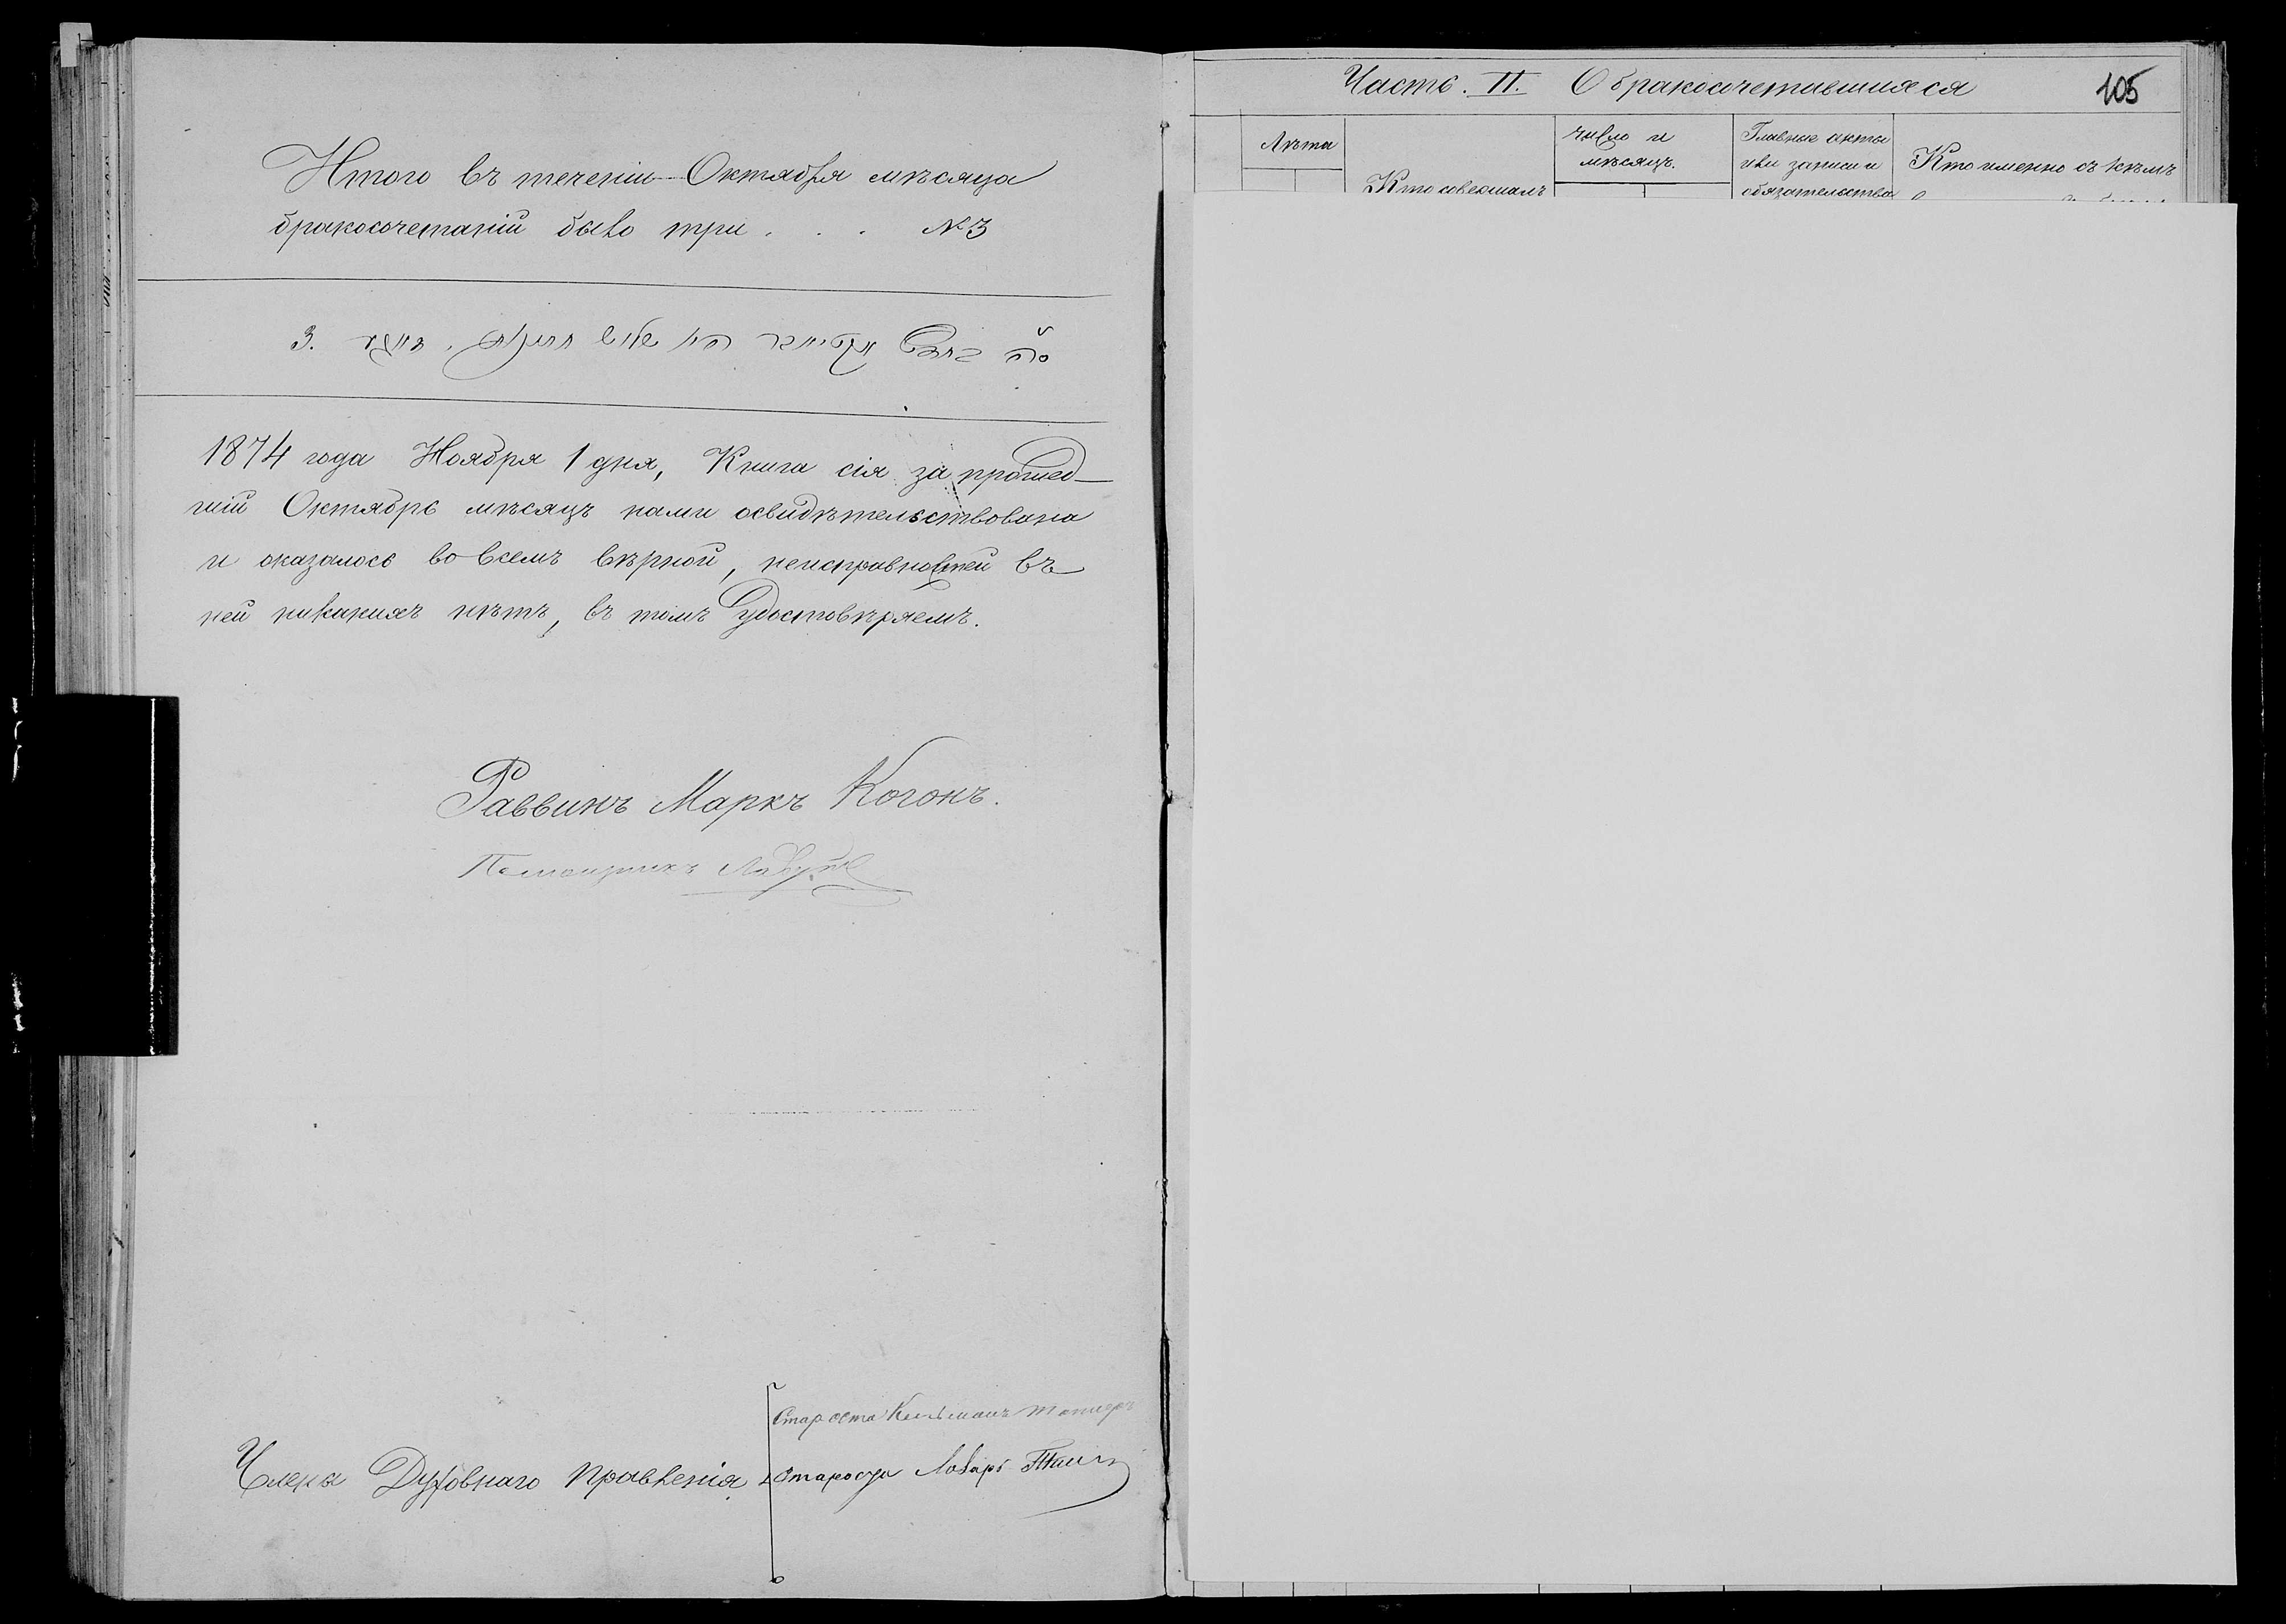 Итого въ теченіи Октября мѣсяца
бракосочетаній было три . . . № 3
3.
1874 года Ноября 1 дня, Книга сія за прошед-
шій Октябрь мѣсяцъ нами освидѣтельствована
и оказалось во всемъ вѣрной, неисправностей въ
ней никакихъ нѣтъ, въ томъ удостовѣряемъ.
Раввинъ Маркъ Когонъ.
Помощникъ
Староста
Члены Духовнаго Правленія
Староста Лазарь
Часть. II. О бракосочетавшихся
105
Лѣта
Кто совершалъ
число и
мѣсяцъ.
Главные акты
или записи и
обязательства
Кто именно съ кѣмъ